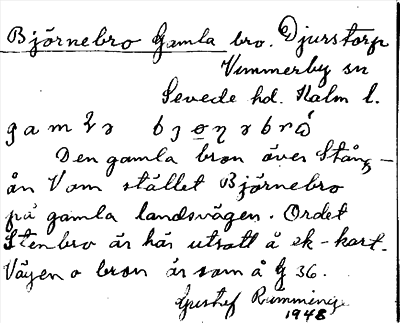 Björnebro Gamla bro. Djurstorp
Vimmerby sn
Sevede hd. Kalm l.
Den gamla bron över Stång-
ån V om stället Björnebro
på gamla landsvägen. Ordet
Stenbro är här utsatt å ek-kart.
Vägen o bron är som å G 36.
Gustef Rimminge
1948